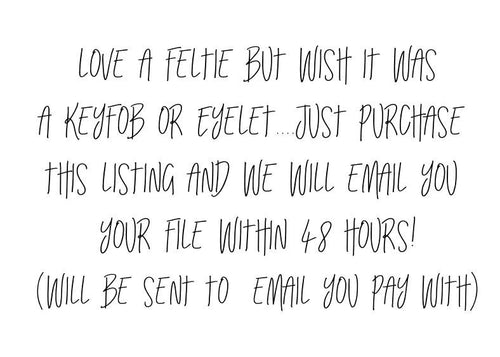 LOVE A FELTIE BUT WISH IT WAS
A KEYFOB OR EYELET....JUST PURCHASE
THIS LISTING AND WE WILL EMAIL YOU
YOUR FILE WITHIN 48 HOURS!
(WILL BE SENT TO EMAIL YOU PAY WITH)